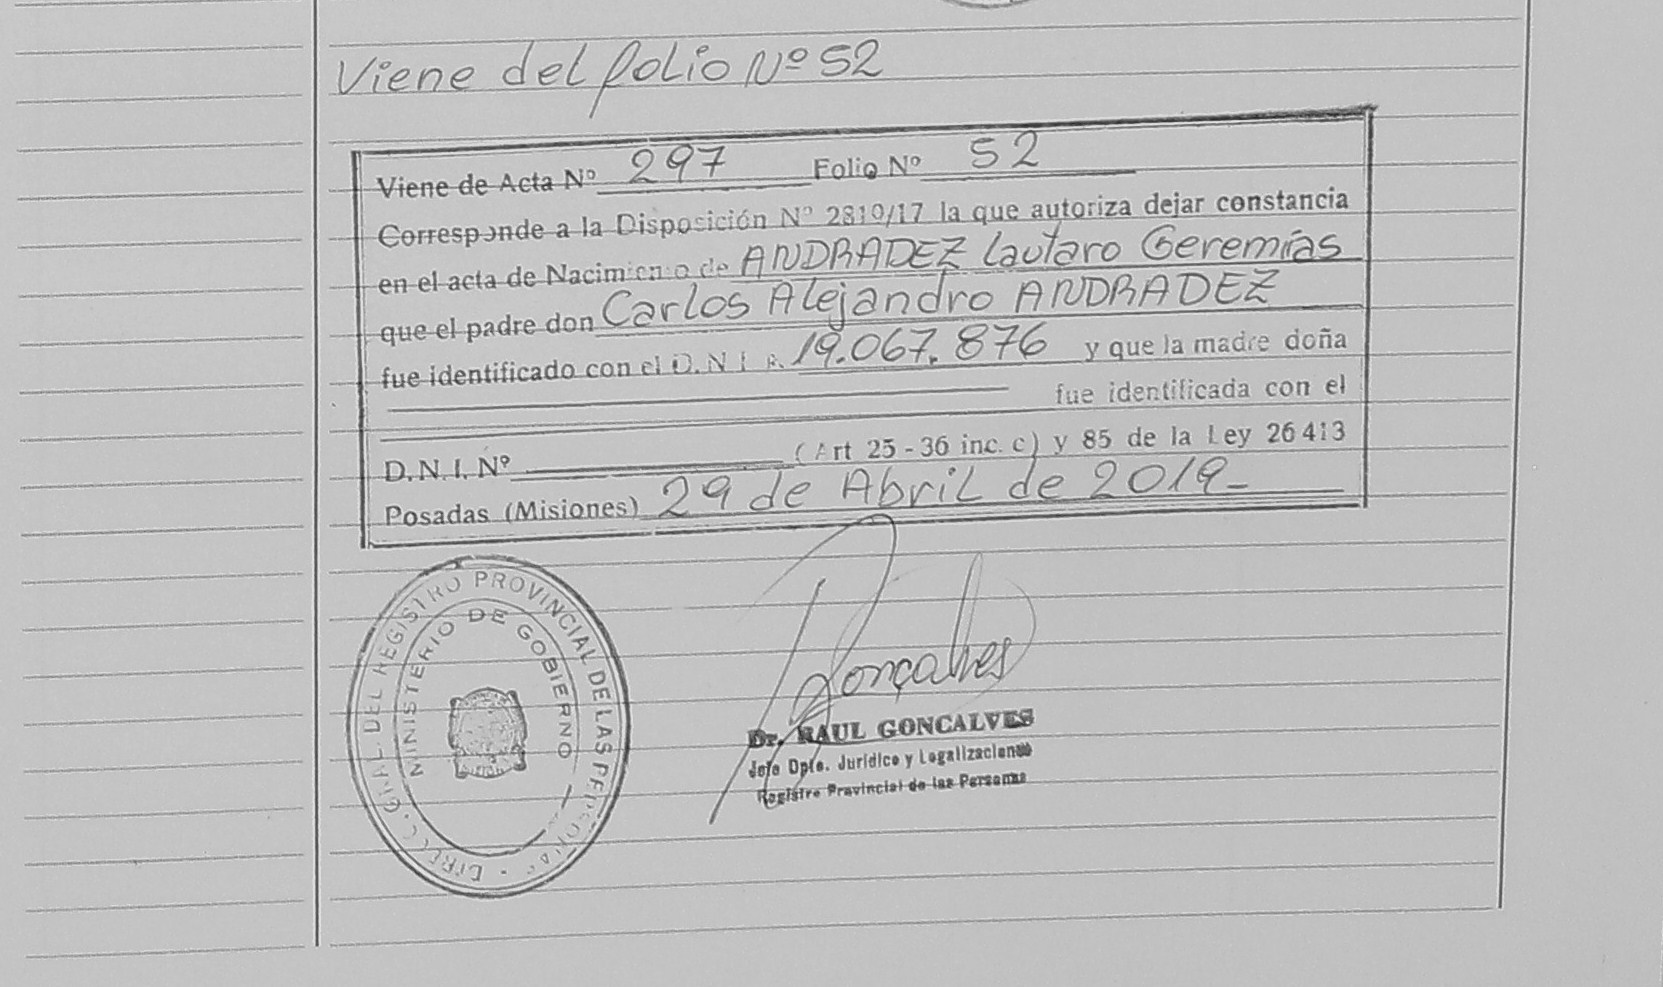 Viene del folio Nº 52
Viene de Acta Nº 297 Folio Nº 52
Corresponde a la Disposición Nº 2810/17 la que autoriza dejar constancia
en el acta de Nacimiento de ANDRADEZ Lautaro Geremías
que el padre don Carlos Alejandro ANDRADEZ
fue identificado con el D.N.I. 19.067.876 y que la madre doña
fue identificada con el
D.N.I. Nº (Art 25 - 36 inc. c) y 85 de la Ley 26413
Posadas (Misiones) 29 de Abril de 2019_
DIREC. GRAL. DEL REGISTRO PROVINCIAL DE LAS PERSONAS
MINISTERIO DE GOBIERNO
Gonçalves
Dr. RAUL GONCALVES
Jefe Dpto. Jurídico y Legalizaciones
Registro Provincial de las Personas